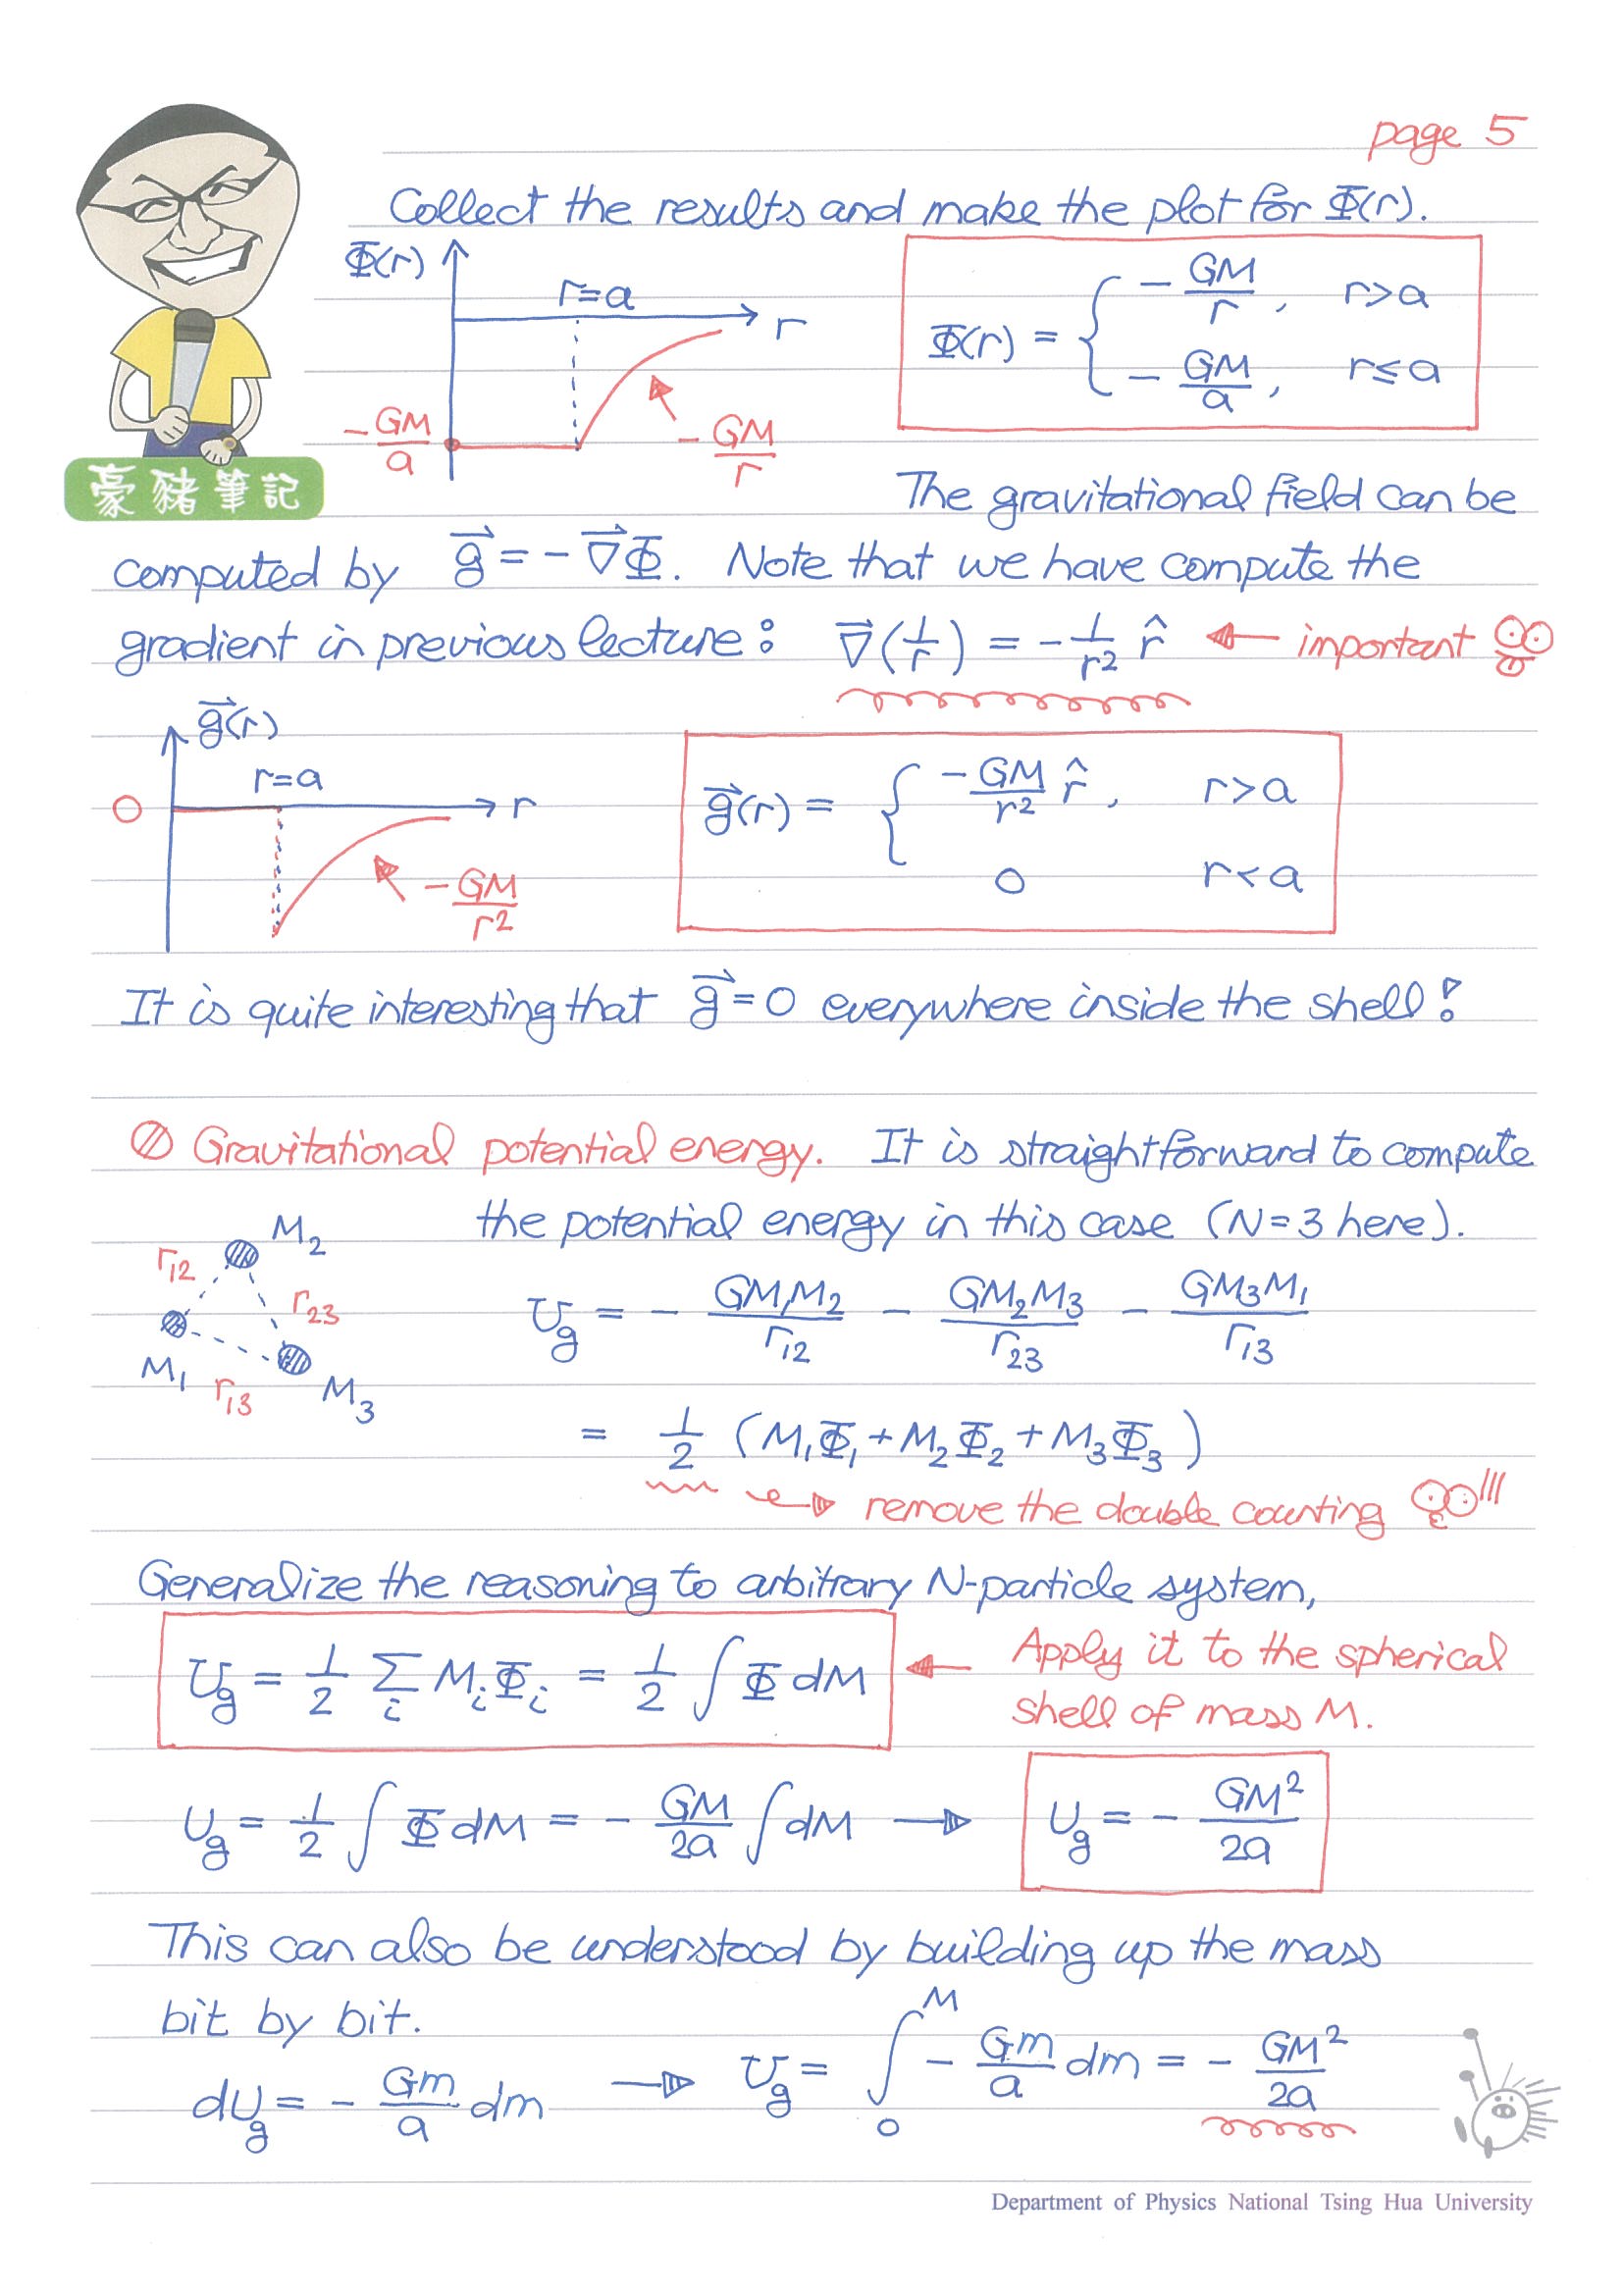 page 5
Collect the results and make the plot for Φ(r).
Φ(r)
r=a
r
-GM/a
-GM/r
Φ(r) = { -GM/r, r>a
-GM/a, r≤a
豪豬筆記
The gravitational field can be
computed by g⃗ = -∇⃗Φ. Note that we have compute the
gradient in previous lecture: ∇⃗(1/r) = -1/r² r̂ ← important
g⃗(r)
r=a
0
r
-GM/r²
g⃗(r) = { -GM/r² r̂, r>a
0 r<a
It is quite interesting that g⃗=0 everywhere inside the shell!
Gravitational potential energy. It is straightforward to compute
the potential energy in this case (N=3 here).
M₂
r₁₂
r₂₃
M₁
r₁₃
M₃
U_g = - GM₁M₂/r₁₂ - GM₂M₃/r₂₃ - GM₃M₁/r₁₃
= 1/2 (M₁Φ₁+M₂Φ₂+M₃Φ₃)
→ remove the double counting !!!
Generalize the reasoning to arbitrary N-particle system,
U_g = 1/2 Σ_i M_iΦ_i = 1/2 ∫ Φ dM ← Apply it to the spherical
shell of mass M.
U_g = 1/2 ∫ Φ dM = - GM/2a ∫ dM → U_g = - GM²/2a
This can also be understood by building up the mass
bit by bit.
dU_g = - Gm/a dm → U_g = ∫₀ᴹ - Gm/a dm = - GM²/2a
Department of Physics National Tsing Hua University